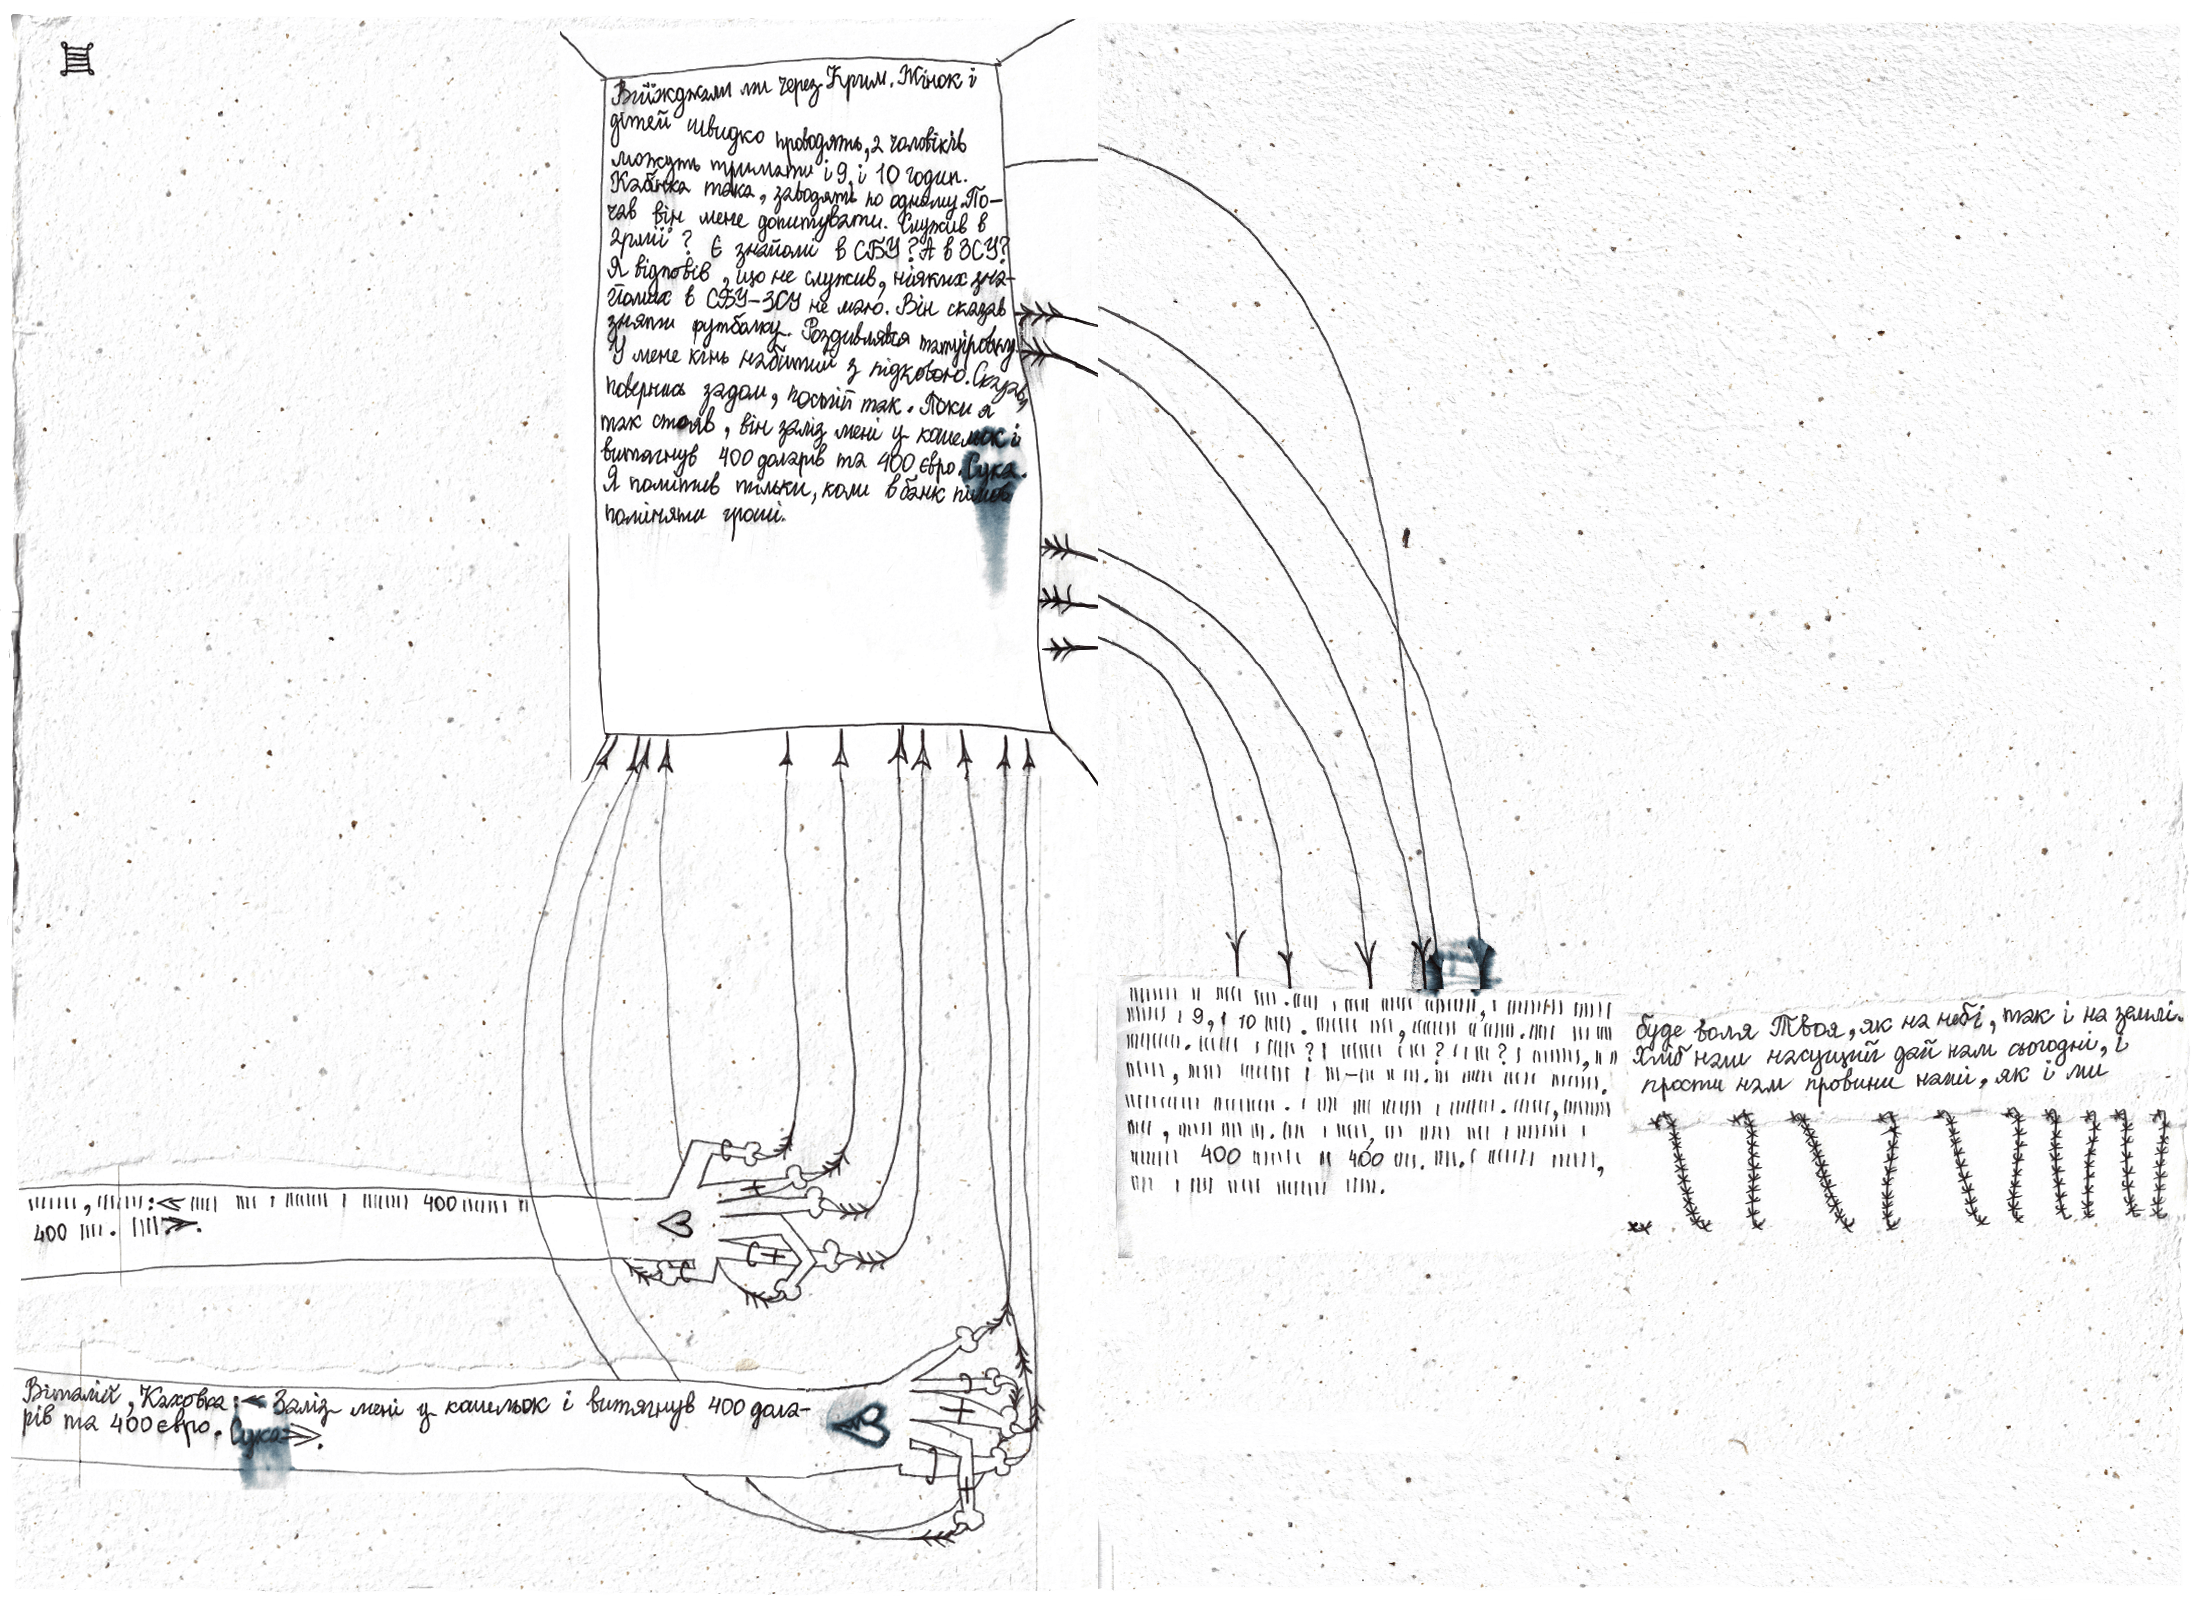 Виїжджали ми через Крим. Жінок і
дітей швидко проводять, а чоловіків
можуть тримати і 9, і 10 годин.
Кабінка така, заводять по одному. По-
чав він мене допитувати. Служив в
армії? Є знайомі в СБУ? А в ЗСУ?
Я відповів, що не служив, ніяких зна-
йомих в СБУ-ЗСУ не маю. Він сказав
зняти футболку. Роздивлявся татуіровку.
У мене кінь набитий з підковою. Сказав,
повернись задом, постій так. Поки я
так стояв, він заліз мені у кошельок і
витягнув 400 доларів та 400 євро. Сука.
Я помітив тільки, коли в банк пішов
поміняти гроші.
400
400
Віталій, Каховка: Заліз мені у кошельок і витягнув 400 дола-
рів та 400 євро. Сука
і 9, і 10
400 400
буде воля Твоя, як на небі, так і на землі.
Хліб наш насущий дай нам сьогодні, і
прости нам провини наші, як і ми